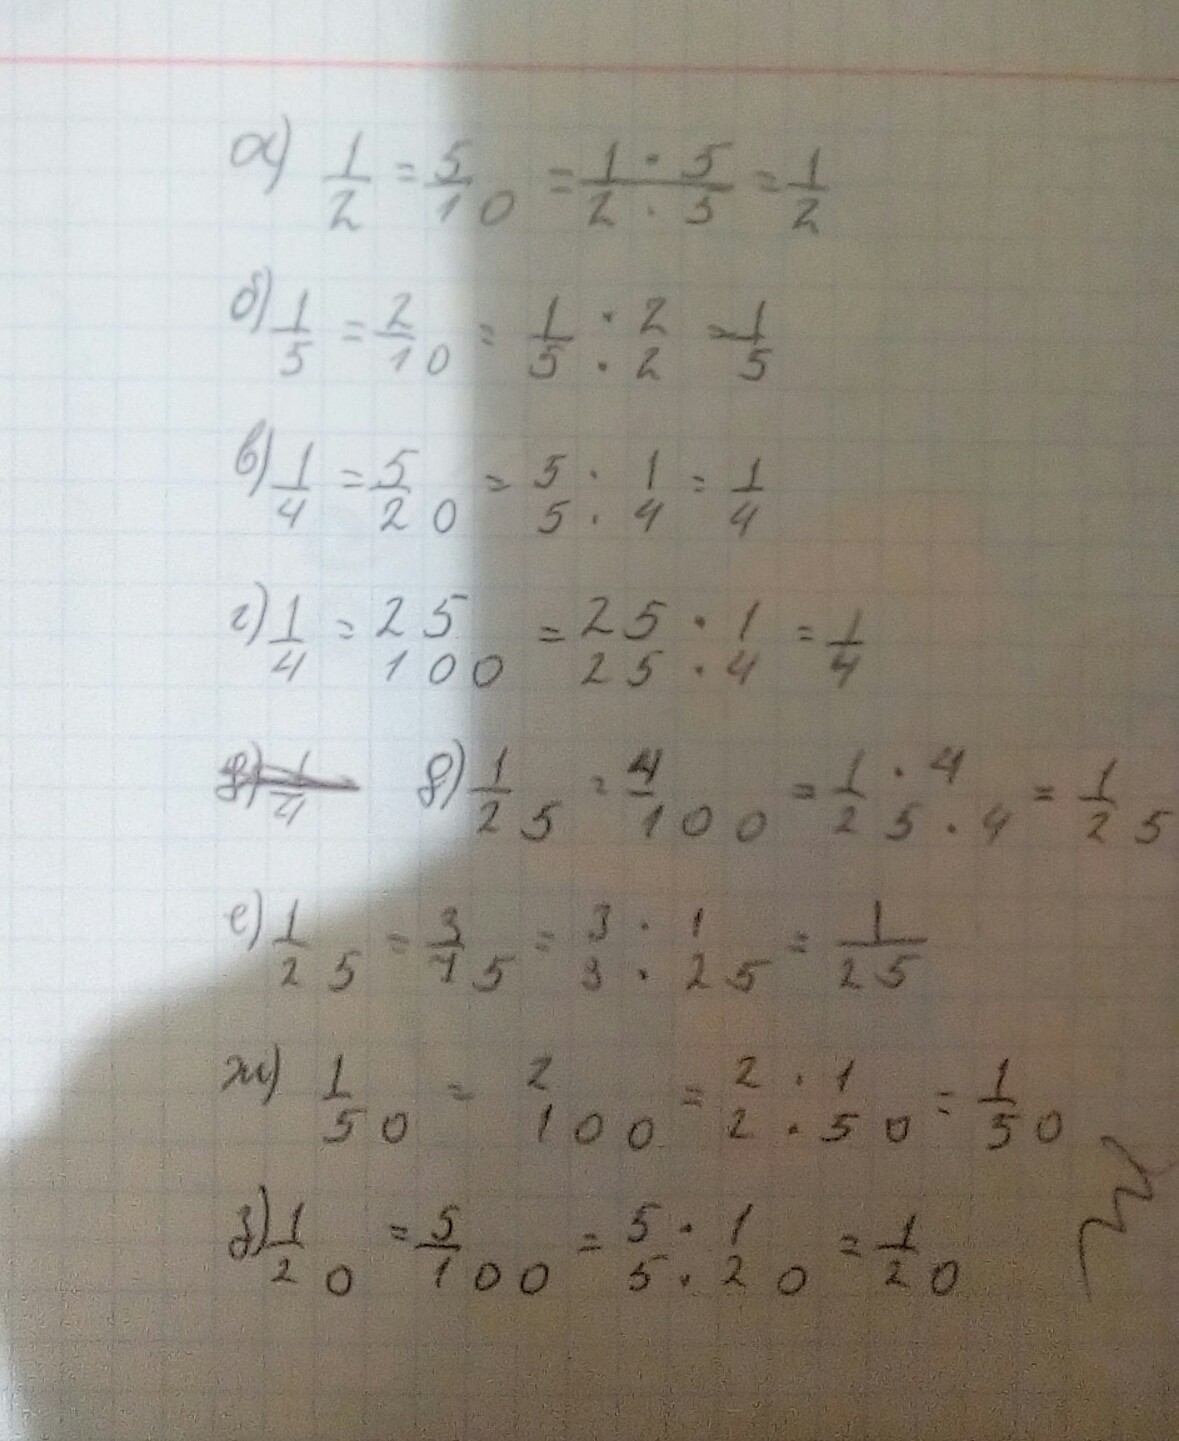 а) 1/2 = 5/10 = 1·5/2·5 = 1/2
б) 1/5 = 2/10 = 1·2/5·2 = 1/5
в) 1/4 = 5/20 = 5·1/5·4 = 1/4
г) 1/4 = 25/100 = 25·1/25·4 = 1/4
д) 1/25 = 4/100 = 1·4/25·4 = 1/25
е) 1/25 = 3/75 = 3·1/3·25 = 1/25
ж) 1/50 = 2/100 = 2·1/2·50 = 1/50
з) 1/20 = 5/100 = 5·1/5·20 = 1/20